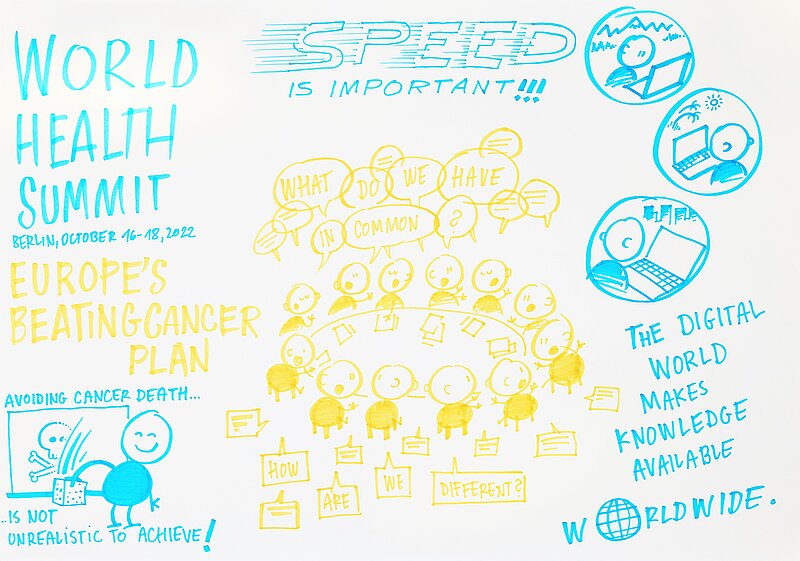 WORLD
HEALTH
SUMMIT
BERLIN, OCTOBER 16-18, 2022
EUROPE'S
BEATING CANCER
PLAN
AVOIDING CANCER DEATH...
...IS NOT
UNREALISTIC TO ACHIEVE!
SPEED
IS IMPORTANT!!!
WHAT DO WE HAVE
IN COMMON ?
HOW
ARE
WE
DIFFERENT?
THE DIGITAL
WORLD
MAKES
KNOWLEDGE
AVAILABLE
WORLDWIDE.